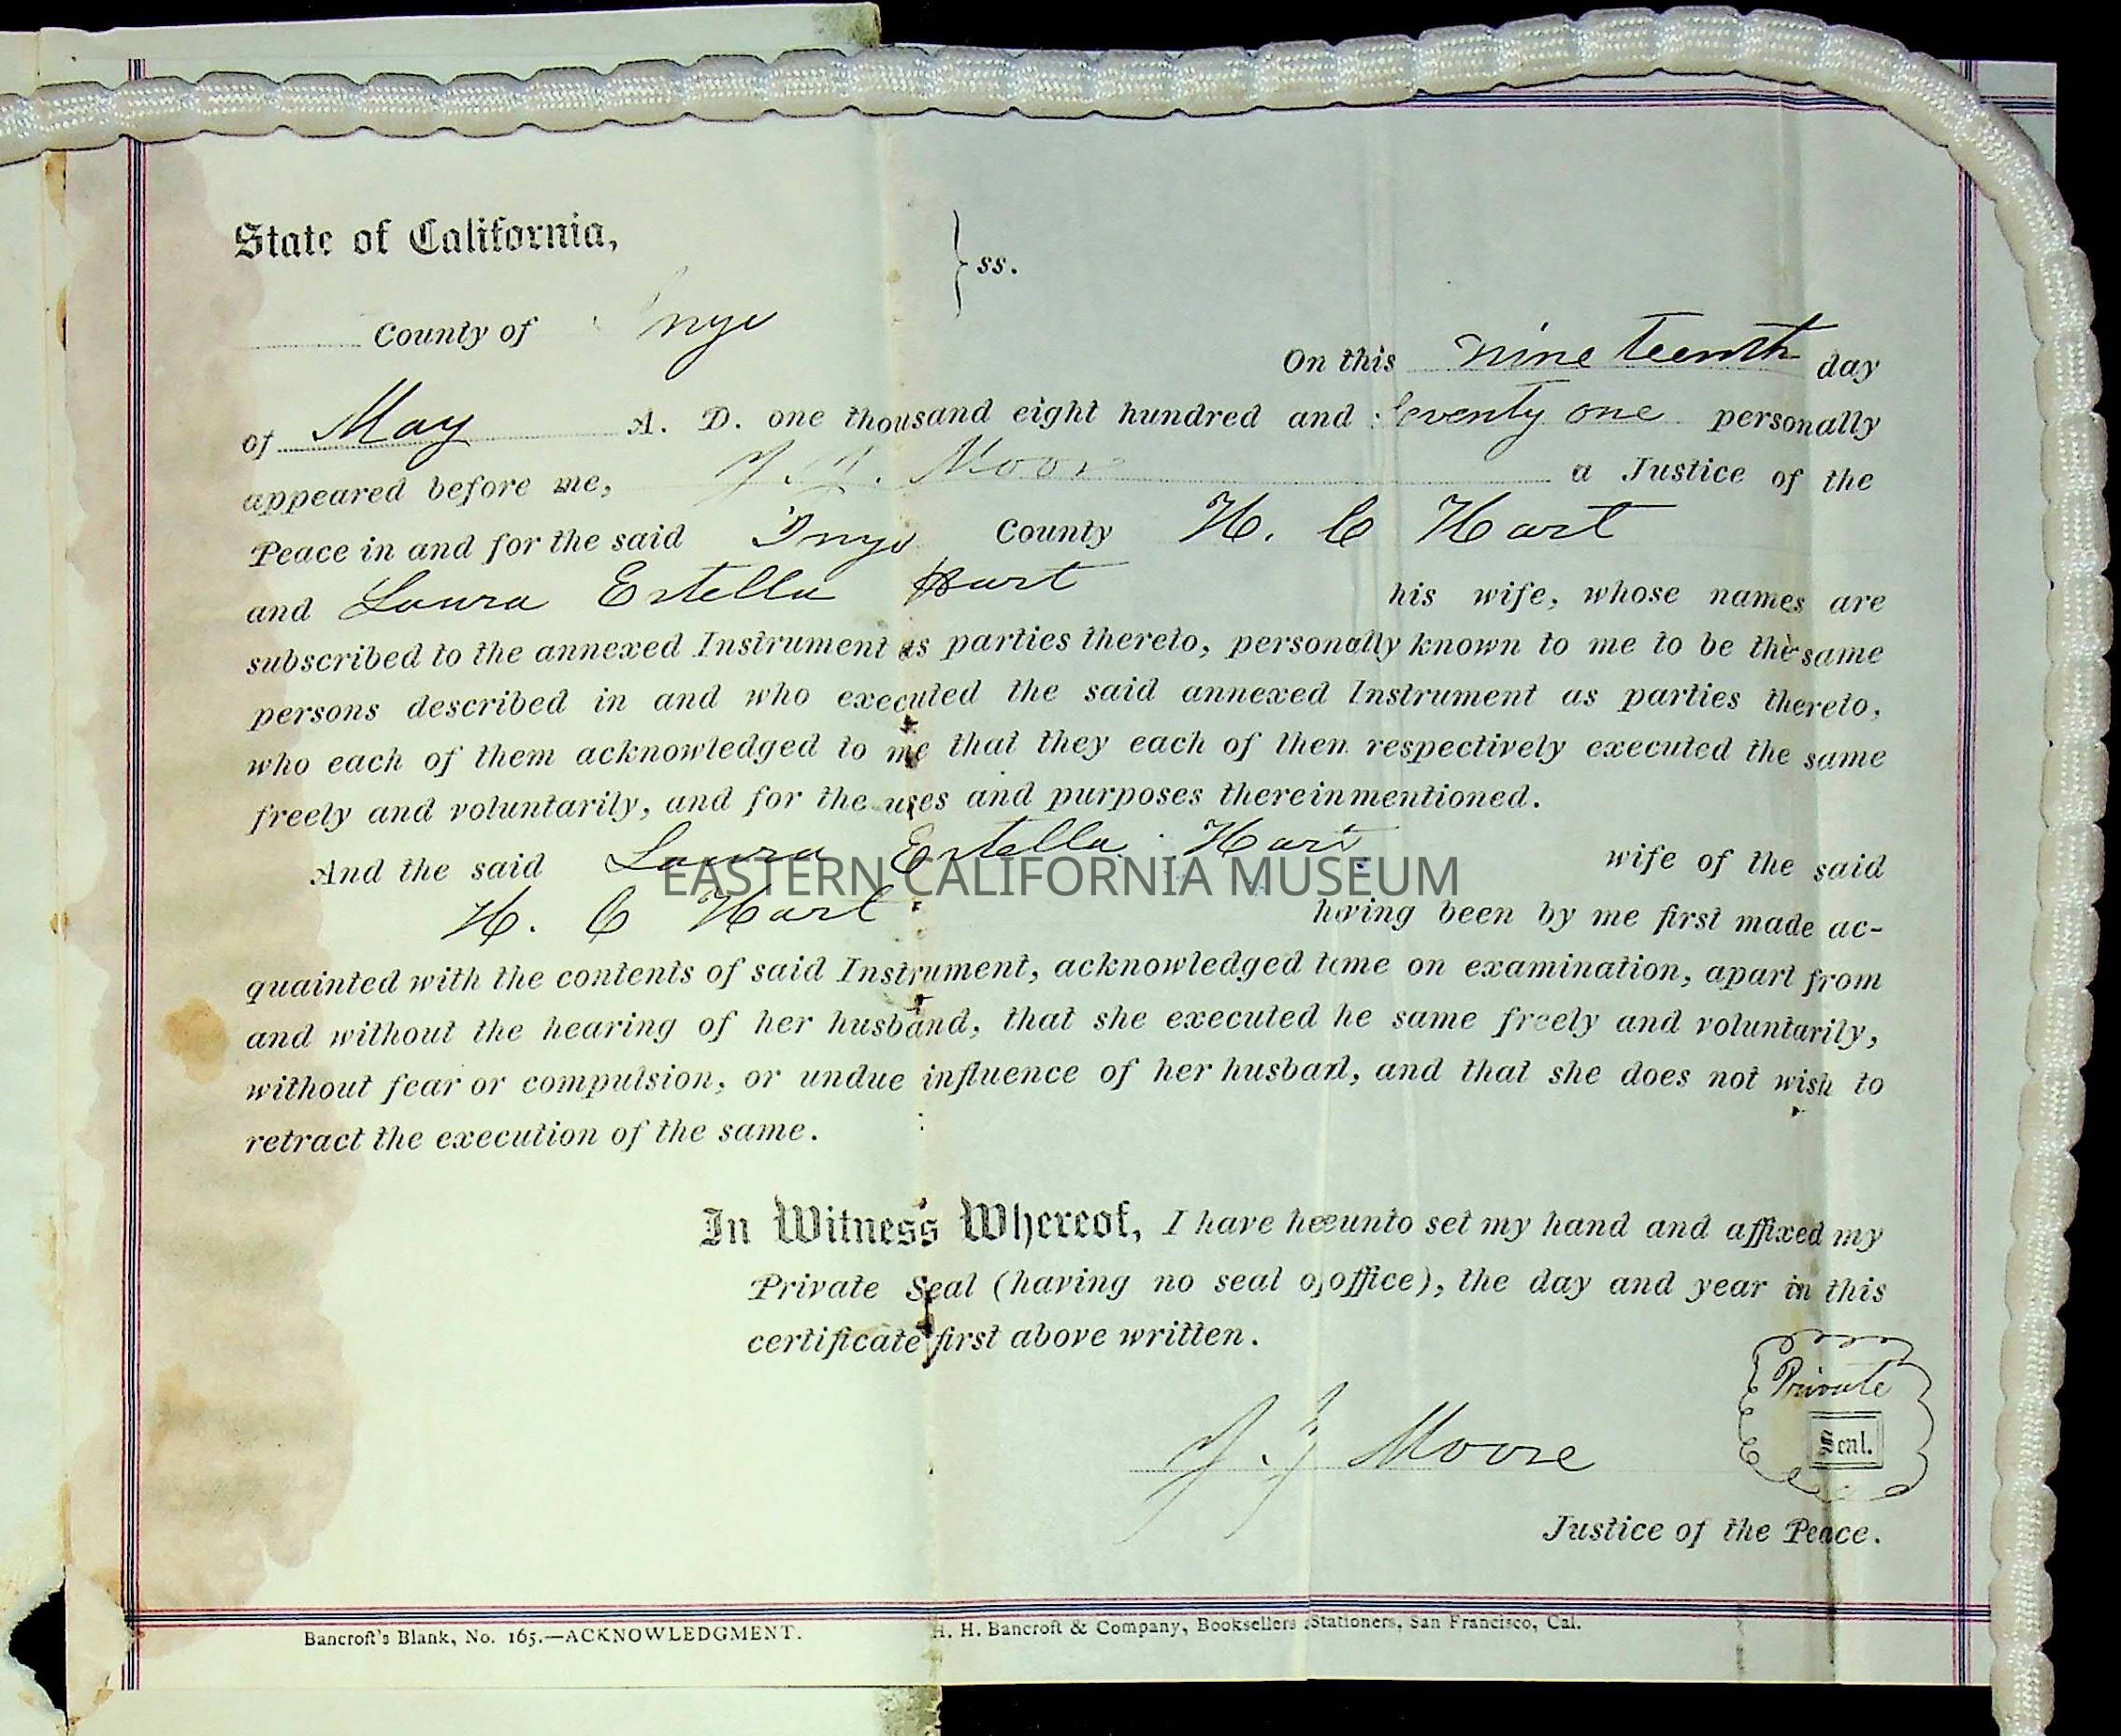 State of California,
ss.
County of Inyo
On this nineteenth day
of May A. D. one thousand eight hundred and Seventy one personally
appeared before me, J. J. Moore a Justice of the
Peace in and for the said Inyo County H. C Hart
and Laura Estella Hart his wife, whose names are
subscribed to the annexed Instrument as parties thereto, personally known to me to be the same
persons described in and who executed the said annexed Instrument as parties thereto,
who each of them acknowledged to me that they each of them respectively executed the same
freely and voluntarily, and for the uses and purposes therein mentioned.
And the said Laura Estella Hart wife of the said
EASTERN CALIFORNIA MUSEUM
H. C Hart having been by me first made ac-
quainted with the contents of said Instrument, acknowledged to me on examination, apart from
and without the hearing of her husband, that she executed he same freely and voluntarily,
without fear or compulsion, or undue influence of her husband, and that she does not wish to
retract the execution of the same.
In Witness Whereof, I have hereunto set my hand and affixed my
Private Seal (having no seal of office), the day and year in this
certificate first above written.
Private
Seal.
J. J Moore
Justice of the Peace.
Bancroft's Blank, No. 165.—ACKNOWLEDGMENT. H. H. Bancroft & Company, Booksellers Stationers, San Francisco, Cal.